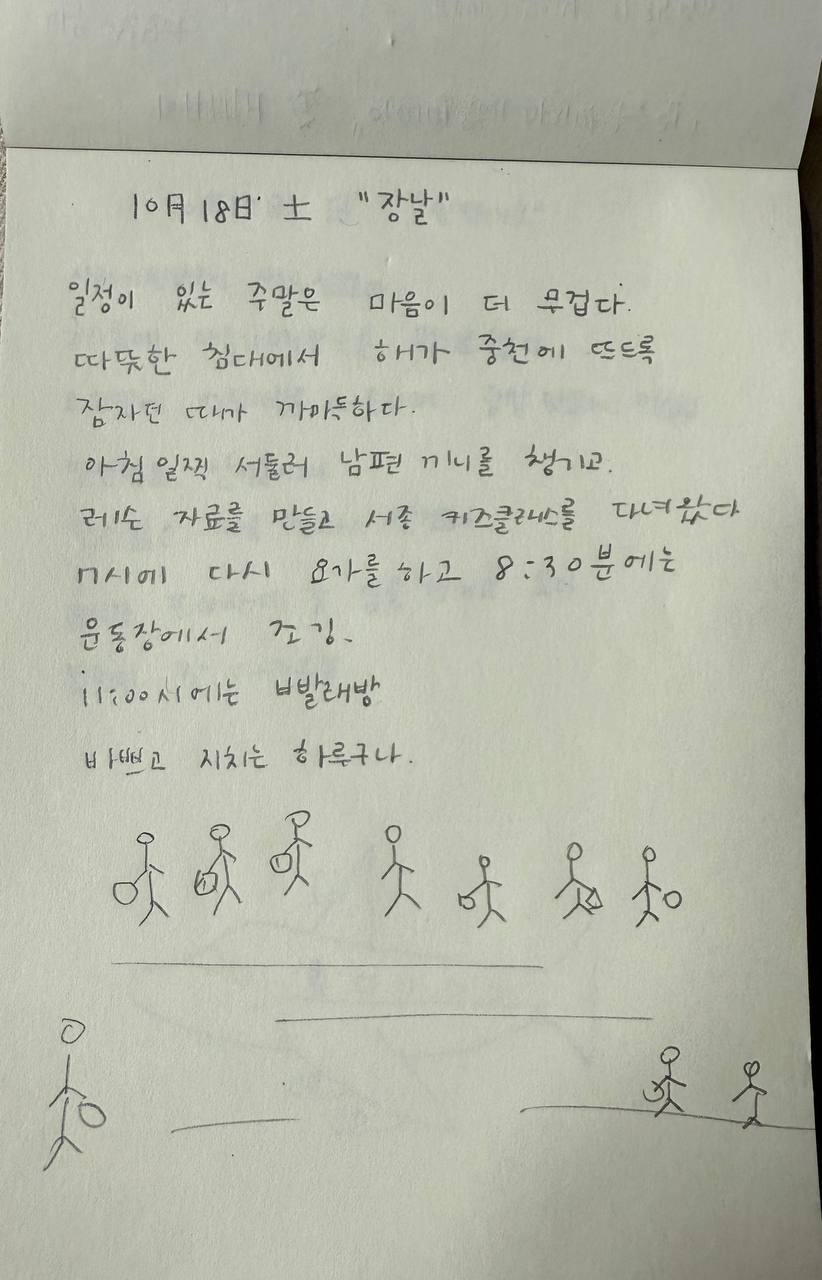 10月 18日 土 "장날"
일정이 있는 주말은 마음이 더 무겁다.
따뜻한 침대에서 해가 중천에 뜨드록
잠자던 때가 까마득하다.
아침 일찍 서둘러 남편 끼니를 챙기고.
레슨 자료를 만들고 세종 키즈클래스를 다녀왔다
7시에 다시 요가를 하고 8:30분에는
운동장에서 조깅.
11:00시에는 빨래방
바쁘고 지치는 하루구나.